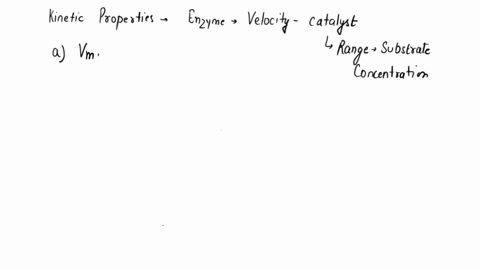 Kinetic Properties → Enzyme → Velocity - catalyst
↳ Range → Substrate
Concentration
a) Vm.